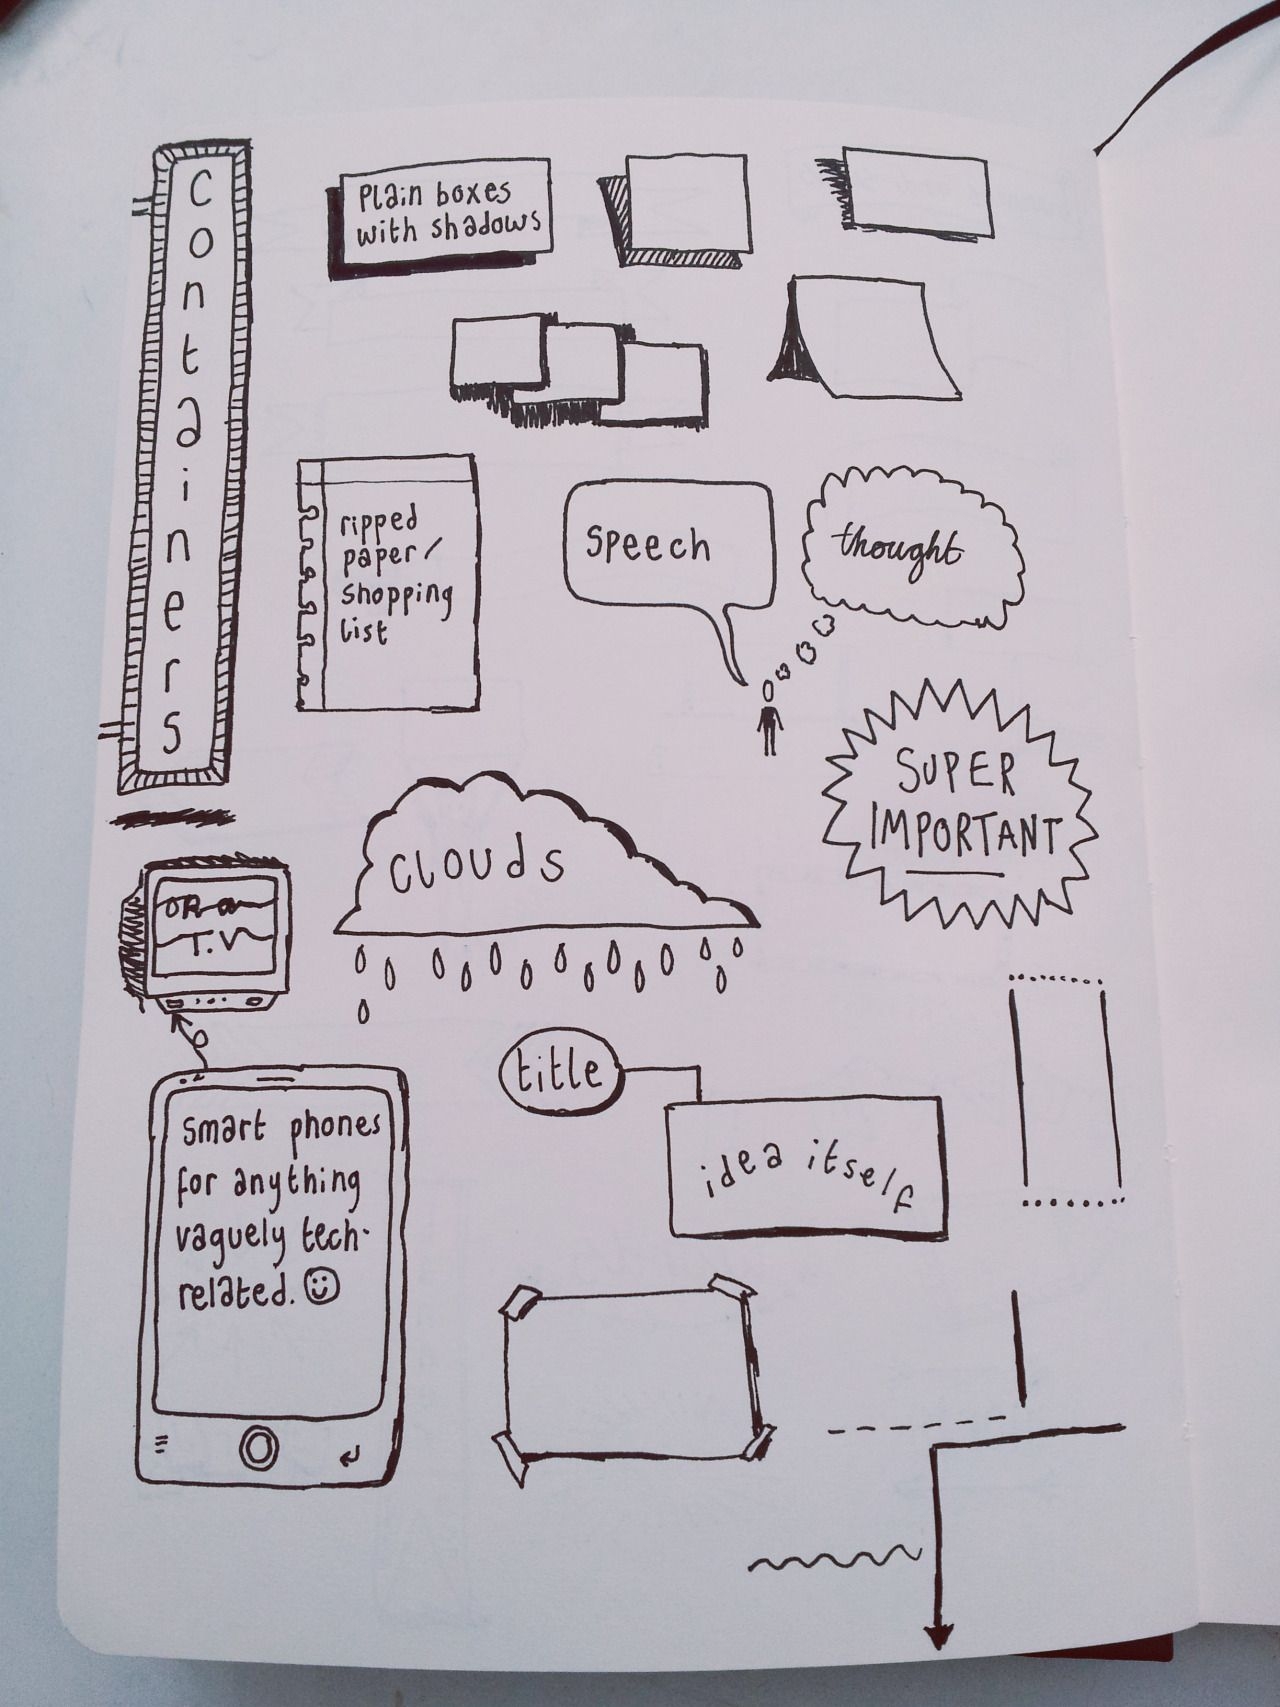 Containers
Plain boxes
with shadows
ripped
paper/
shopping
list
Speech
thought
SUPER
IMPORTANT
CLOUDS
OR a
T.V
title
idea itself
Smart phones
for anything
vaguely tech-
related.